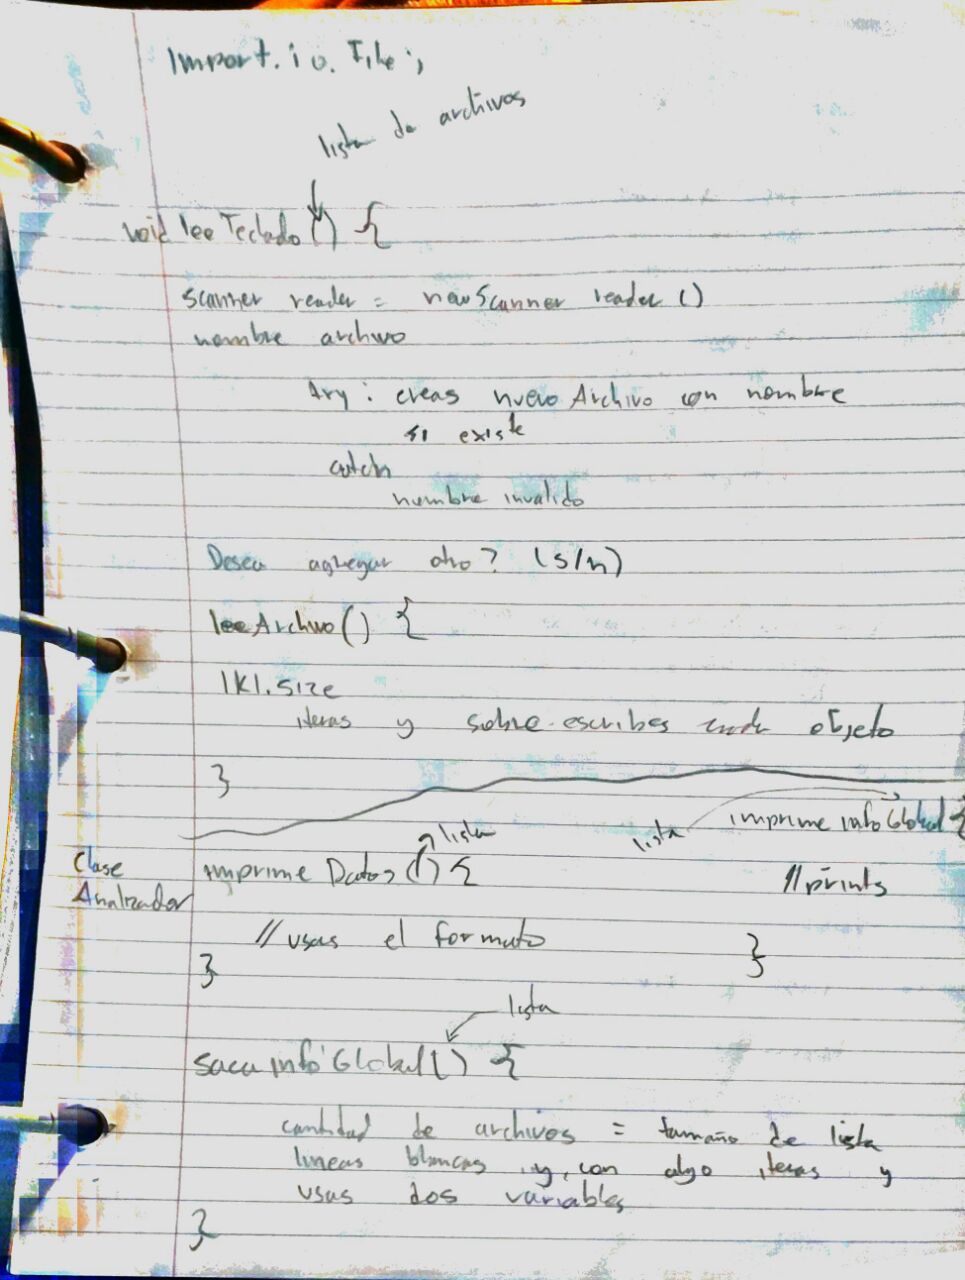 Import.io.File;
lista de archivos
void leeTeclado() {
scanner reader = new Scanner reader ()
nombre archivo
try : creas nuevo Archivo con nombre
si existe
catch
nombre invalido
Desea agregar otro? (s/n)
leeArchivo() {
.size
iteras y sobre-escribes cada objeto
}
lista
imprime info Global {
lista
Clase
Analizador
imprime Datos () {
//prints
// usas el formato
}
}
lista
saca info Global() {
cantidad de archivos = tamaño de lista
lineas blancas y, con algo iteras y
usas dos variables
}